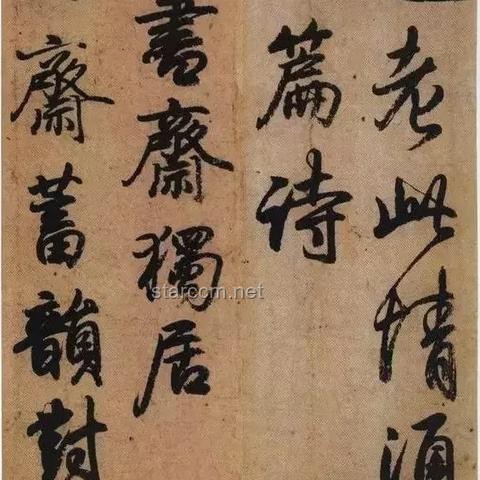 老此情涵
篇诗
書齋獨居
齋蓄韻對
starcom.net